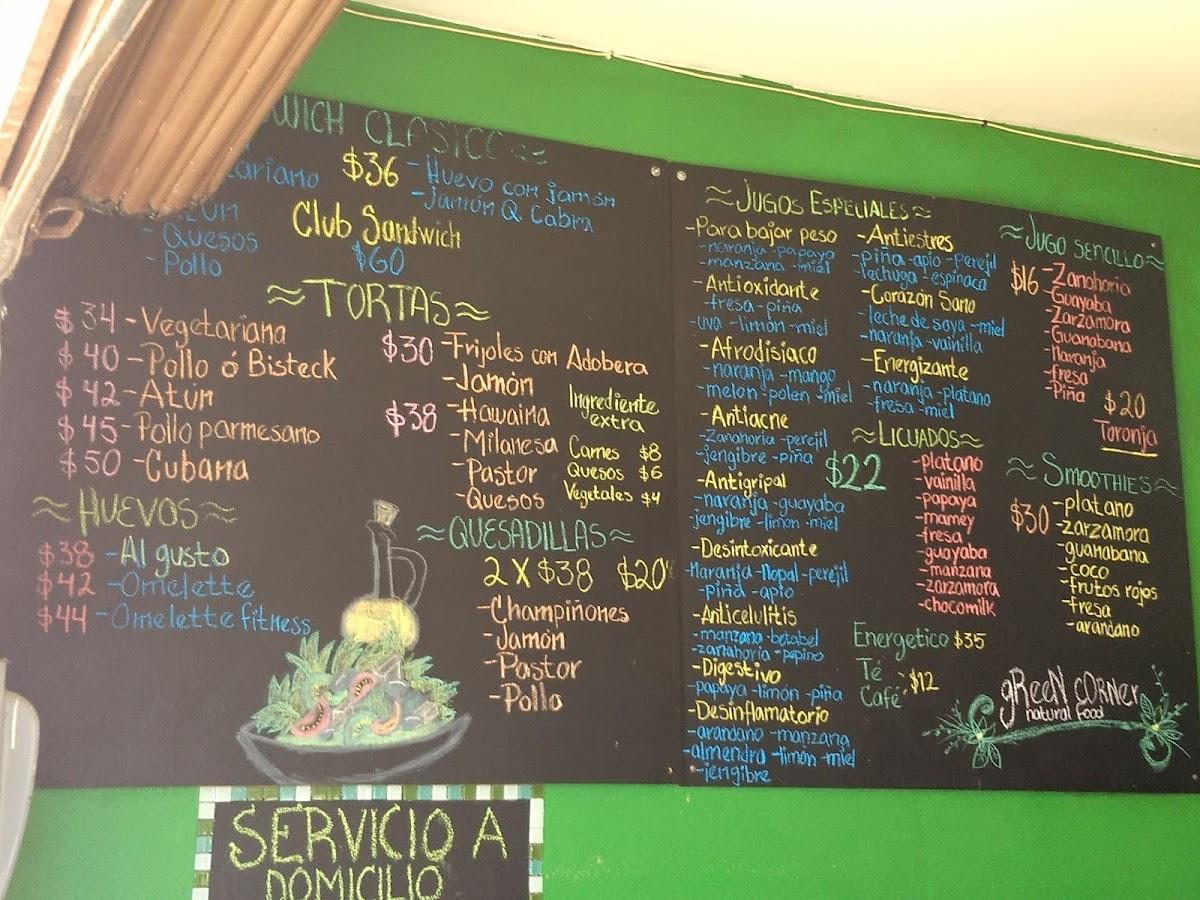 CLASICO
$36 - Huevo con jamón
- Jamón Q. Cabra
- Quesos
- Pollo
Club Sandwich
$60
TORTAS
$34 - Vegetariana
$40 - Pollo ó Bisteck
$42 - Atún
$45 - Pollo parmesano
$50 - Cubana
$30 - Frijoles con Adobera
- Jamón
$38 - Hawaina
- Milanesa
- Pastor
- Quesos
Ingrediente
extra
Carnes $8
Quesos $6
Vegetales $4
HUEVOS
$38 - Al gusto
$42 - Omelette
$44 - Omelette fitness
QUESADILLAS
2 X $38 $20
- Champiñones
- Jamón
- Pastor
- Pollo
JUGOS ESPECIALES
- Para bajar peso
- naranja - papaya
- manzana - miel
- Antioxidante
- fresa - piña
- uva - limón - miel
- Afrodisiaco
- naranja - mango
- melon - polen - miel
- Antiacne
- Zanahoria - perejil
- jengibre - piña
- Antigripal
- naranja - guayaba
jengibre - limón - miel
- Desintoxicante
- Naranja - Nopal - perejil
- piña - apio
- Anticelulitis
- manzana - betabel
- zanahoria - pepino
- Digestivo
- papaya - limón - piña
- Desinflamatorio
- arandano - manzana
- almendra - limón - miel
- jengibre
- Antiestres
- piña - apio - perejil
- lechuga - espinaca
- Corazón Sano
- leche de soya - miel
- naranja - vainilla
- Energizante
- naranja - platano
- fresa - miel
LICUADOS
$22
- platano
- vainilla
- papaya
- mamey
- fresa
- guayaba
- manzana
- zarzamora
- chocomilk
Energetico $35
Té
Café $12
JUGO SENCILLO
$16 - Zanahoria
- Guayaba
- Zarzamora
- Guanabana
- Naranja
- fresa
- Piña
$20
Toronja
SMOOTHIES
$30
- platano
- zarzamora
- guanabana
- coco
- frutos rojos
- fresa
- arandano
gReeN cORNer
natural food
SERVICIO A
DOMICILIO